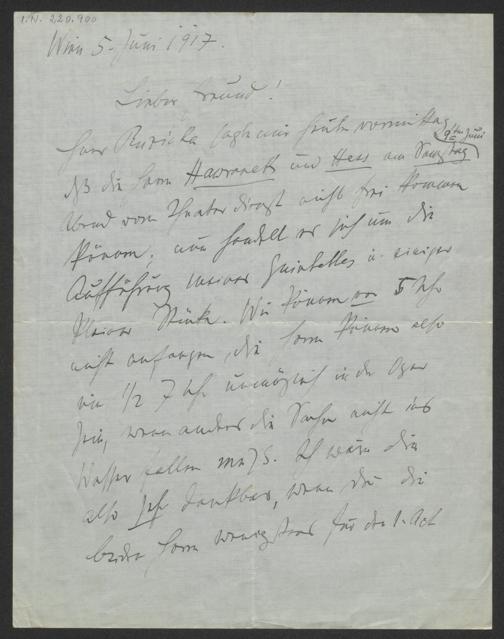 I.N. 220.900
Wien 5. Juni 1917.
Lieber Freund!
Herr Ruzicka sagte mir heute vormittag
daß die Herrn Hawranek und Hess am Samstag
9ten Juni
Abend vom Theaterdienst nicht frei kommen
können, nun handelt es sich um die
Aufführung meines Quintettes u. einiger
kleiner Stücke. Wir können vor 5 Uhr
nicht anfangen, die Herrn können also
um 1/2 7 Uhr unmöglich in der Oper
sein, wenn anders die Sache nicht ins
Wasser fallen muß. Ich wäre dir
also sehr dankbar, wenn du die
beiden Herrn wenigstens für den 1. Act